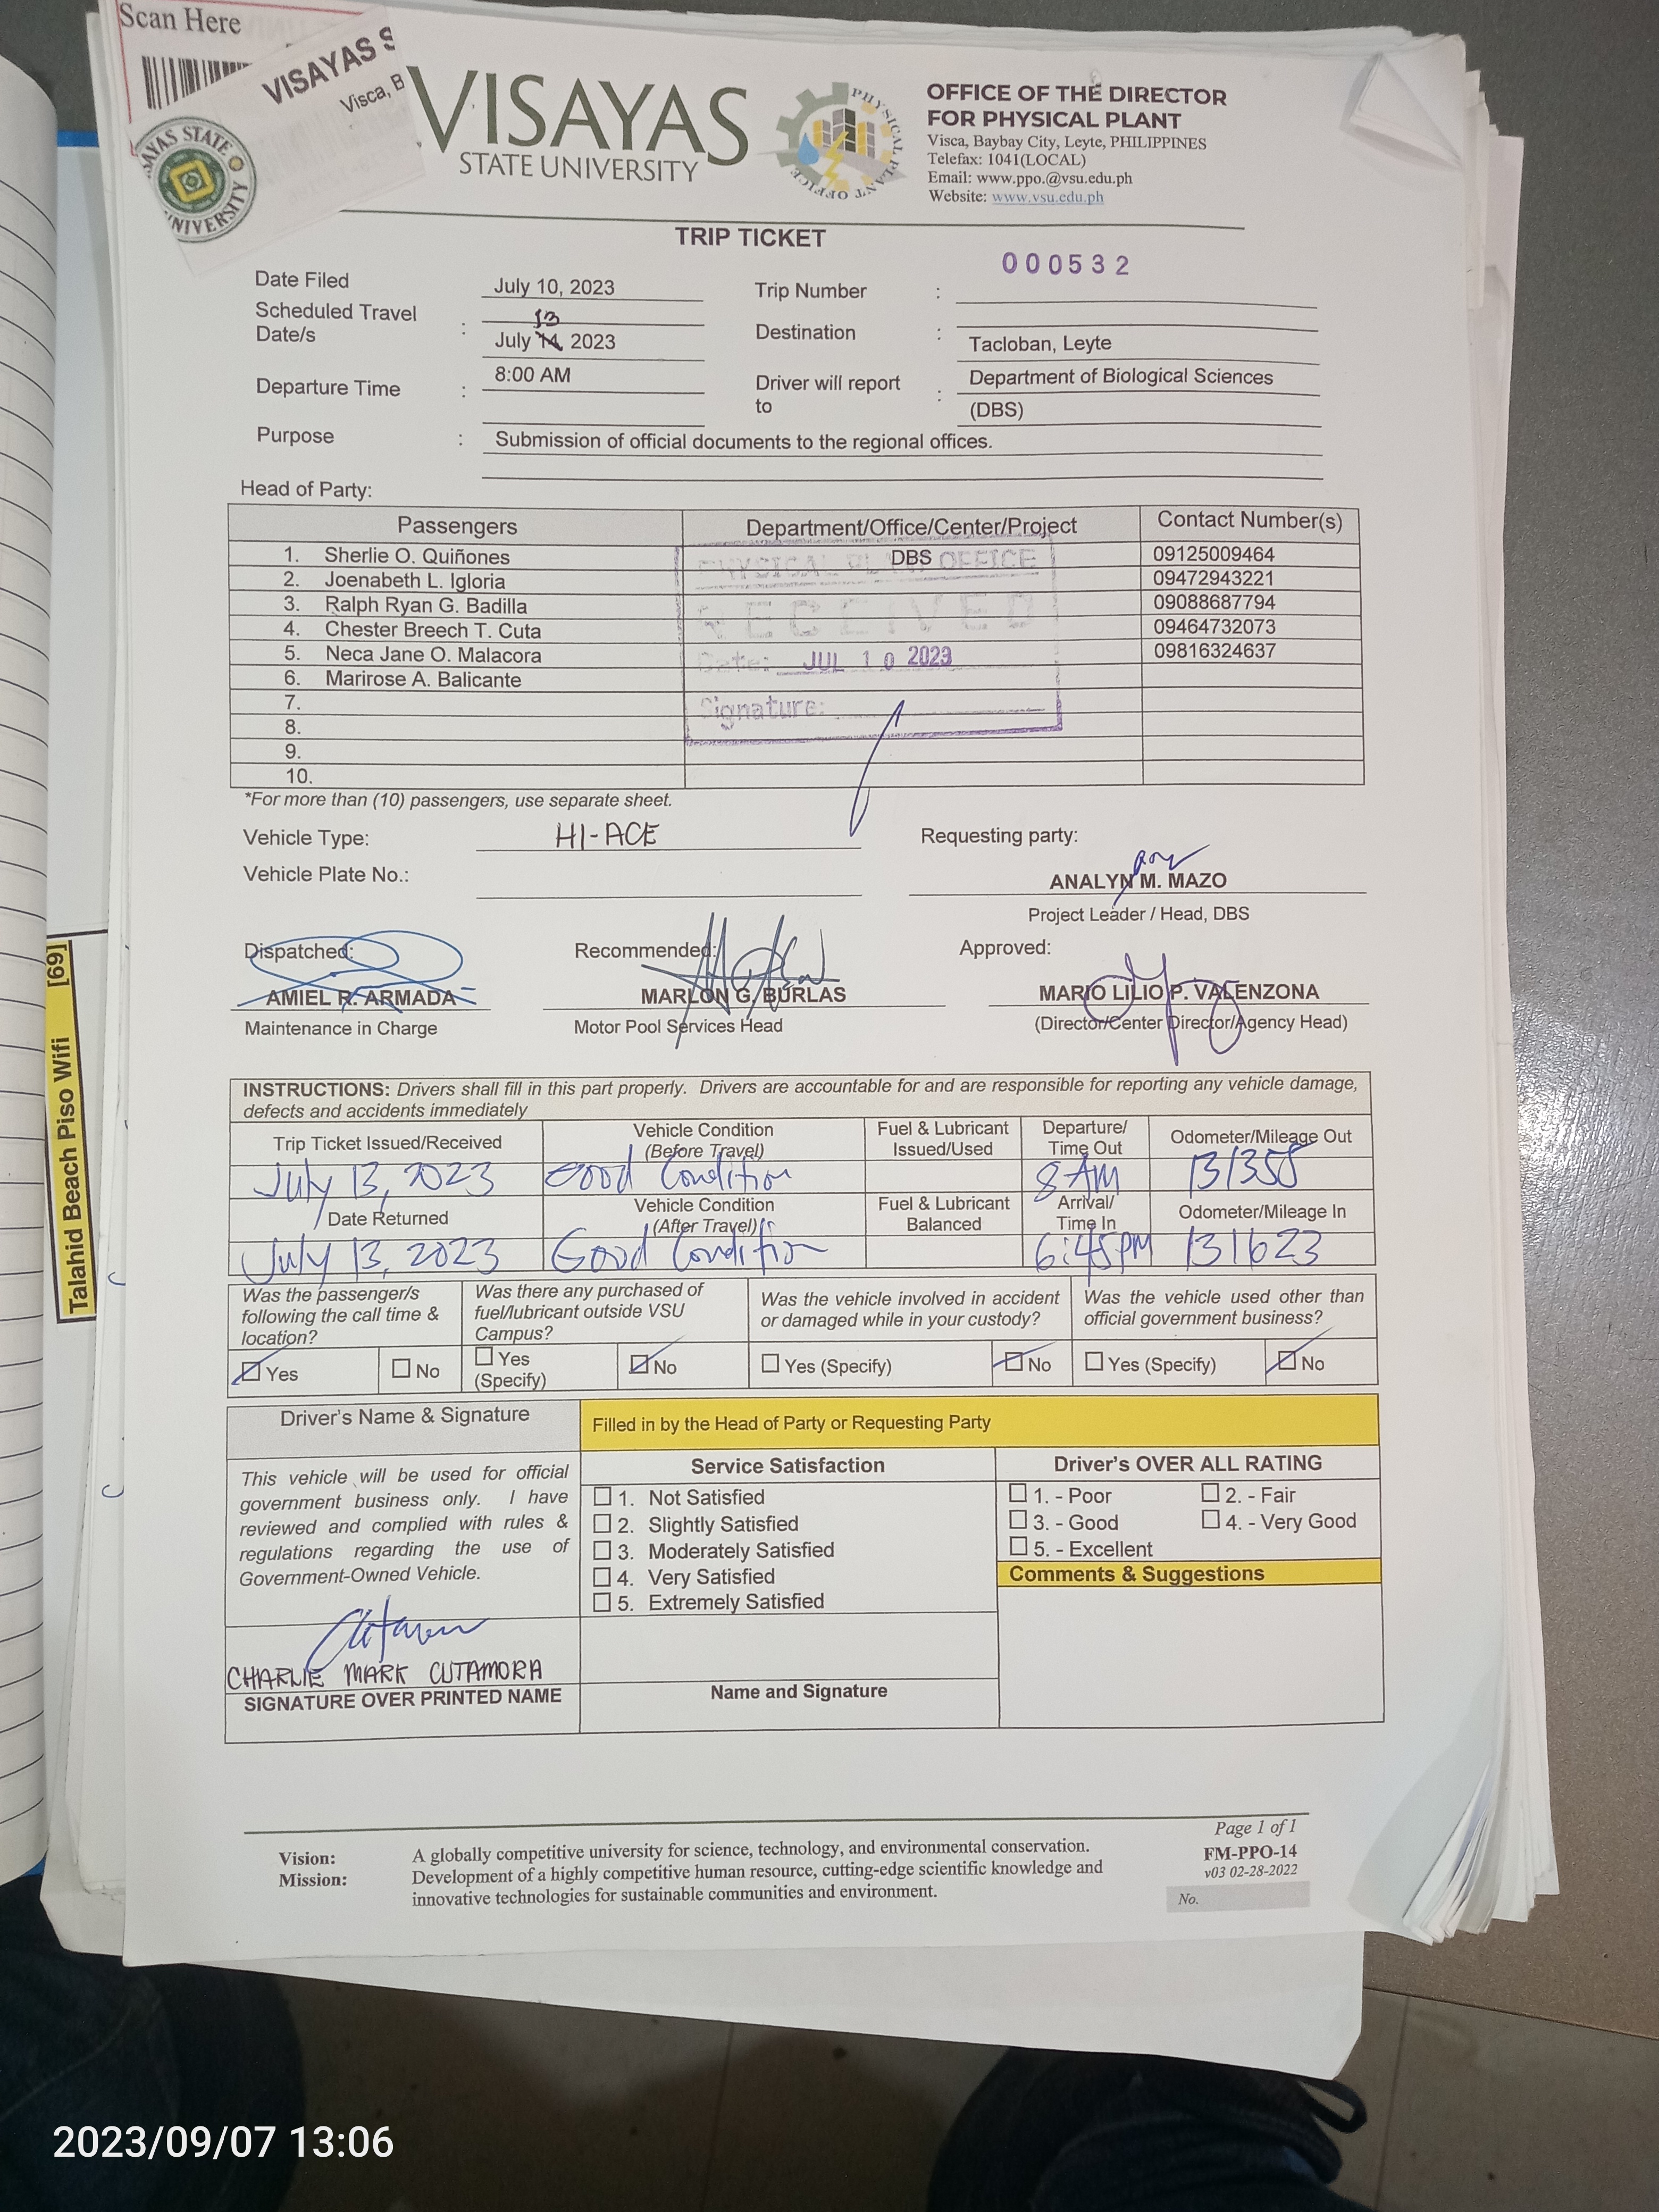 Scan Here
VISAYAS S
Visca, B
VISAYAS
STATE UNIVERSITY
AYAS STATE
NIVERSITY
PHYSICAL PLANT OFFICE
OFFICE OF THE DIRECTOR
FOR PHYSICAL PLANT
Visca, Baybay City, Leyte, PHILIPPINES
Telefax: 1041(LOCAL)
Email: www.ppo.@vsu.edu.ph
Website: www.vsu.edu.ph
TRIP TICKET
000532
Date Filed July 10, 2023 Trip Number :
Scheduled Travel Date/s : July 14 13, 2023 Destination : Tacloban, Leyte
Departure Time : 8:00 AM Driver will report to : Department of Biological Sciences (DBS)
Purpose : Submission of official documents to the regional offices.
Head of Party:
Passengers Department/Office/Center/Project Contact Number(s)
1. Sherlie O. Quiñones DBS 09125009464
2. Joenabeth L. Igloria 09472943221
3. Ralph Ryan G. Badilla 09088687794
4. Chester Breech T. Cuta 09464732073
5. Neca Jane O. Malacora 09816324637
6. Marirose A. Balicante
7.
8.
9.
10.
PHYSICAL PLANT OFFICE
RECEIVED
Date: JUL 10 2023
Signature:
*For more than (10) passengers, use separate sheet.
Vehicle Type: HI-ACE Requesting party:
Vehicle Plate No.: ANALYN M. MAZO
Project Leader / Head, DBS
Dispatched: Recommended: Approved:
AMIEL R. ARMADA MARLON G. BURLAS MARIO LILIO P. VALENZONA
Maintenance in Charge Motor Pool Services Head (Director/Center Director/Agency Head)
INSTRUCTIONS: Drivers shall fill in this part properly. Drivers are accountable for and are responsible for reporting any vehicle damage,
defects and accidents immediately
Trip Ticket Issued/Received Vehicle Condition (Before Travel) Fuel & Lubricant Issued/Used Departure/ Time Out Odometer/Mileage Out
July 13, 2023 Good Condition 8 AM 131355
Date Returned Vehicle Condition (After Travel) Fuel & Lubricant Balanced Arrival/ Time In Odometer/Mileage In
July 13, 2023 Good Condition 6:45PM 131623
Was the passenger/s following the call time & location?
Was there any purchased of fuel/lubricant outside VSU Campus?
Was the vehicle involved in accident or damaged while in your custody?
Was the vehicle used other than official government business?
Yes No Yes (Specify) No Yes (Specify) No Yes (Specify) No
Driver's Name & Signature Filled in by the Head of Party or Requesting Party
This vehicle will be used for official
government business only. I have
reviewed and complied with rules &
regulations regarding the use of
Government-Owned Vehicle.
CHARLIE MARK CUTAMORA
SIGNATURE OVER PRINTED NAME
Service Satisfaction
1. Not Satisfied
2. Slightly Satisfied
3. Moderately Satisfied
4. Very Satisfied
5. Extremely Satisfied
Name and Signature
Driver's OVER ALL RATING
1. - Poor 2. - Fair
3. - Good 4. - Very Good
5. - Excellent
Comments & Suggestions
Vision: A globally competitive university for science, technology, and environmental conservation.
Mission: Development of a highly competitive human resource, cutting-edge scientific knowledge and
innovative technologies for sustainable communities and environment.
Page 1 of 1
FM-PPO-14
v03 02-28-2022
No.
Talahid Beach Piso Wifi [69]
2023/09/07 13:06